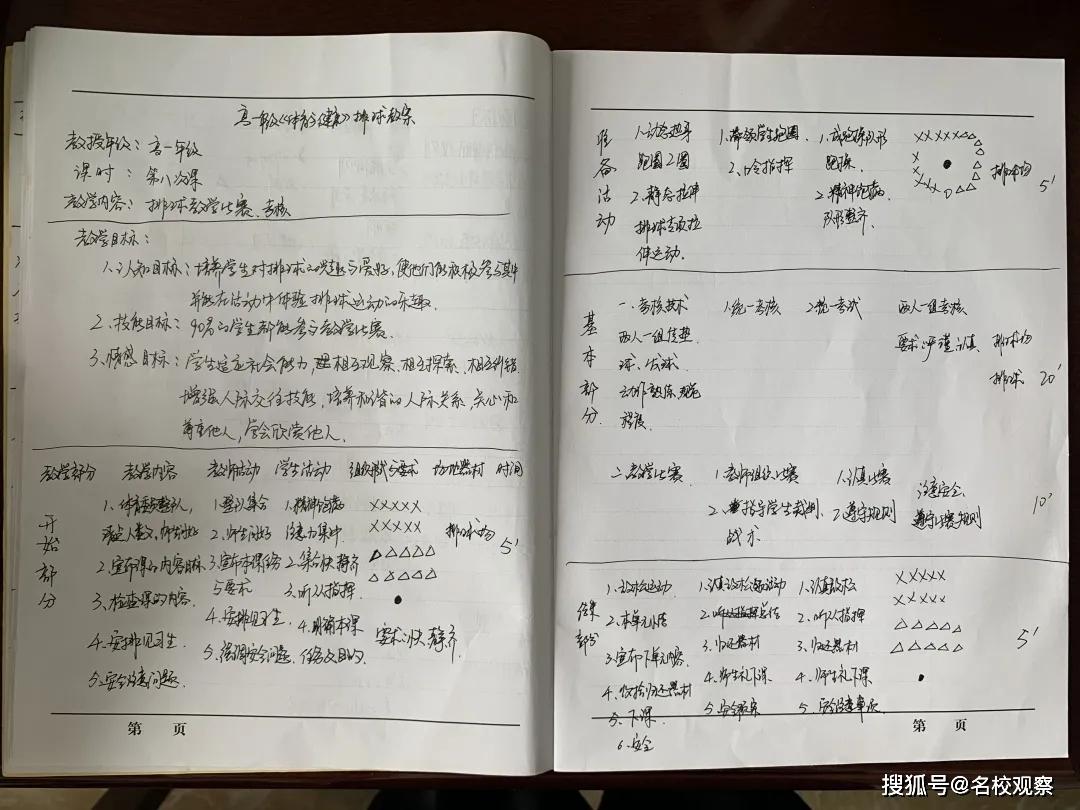 高一年级《体育与健康》排球教案
教授年级：高一年级
课时：第八次课
教学内容：排球教学比赛、考核
教学目标：
1、认知目标：培养学生对排球的兴趣与爱好，使他们能积极参与其中
并能在活动中体验排球运动的乐趣
2、技能目标：90%的学生都能参与教学比赛
3、情感目标：学生适应社会能力，相互观察、相互探索、相互纠错
增强人际交往技能，培养和谐的人际关系，关心和
尊重他人，学会欣赏他人。
教学部分 教学内容 教师活动 学生活动 组织形式与要求 场地器材 时间
开始部分
1、体育委员整队，
清点人数，师生问好
2、宣布课的内容目标
3、检查课的内容.
4、安排见习生.
5、安全注意问题.
1、整队集合
2、师生问好
3、宣布本课任务
与要求
4、安排见习生.
5、强调安全问题.
1、精神饱满
注意力集中
2、集合快静齐
3、听从指挥.
4、明确本课
任务及目的
XXXXX
XXXXX
△△△△△
△△△△△
●
要求：快静齐
排球场 5'
第 页
准备活动
1、动态热身
跑圈2圈
2、静态拉伸
排球专项拉
伸运动.
1、带领学生跑圈
2、口令指挥
1、成跑操队形
跑操.
2、精神饱满
队形整齐
排球场 5'
基本部分
一、考核技术
两人一组传垫
球、发球.
动作熟练规范
程度.
1、统一考核
2、统一考试
两人一组考核
要求：严谨认真
排球场
排球 20'
二、教学比赛
1、老师组织比赛
2、指导学生裁判、
战术
1、认真比赛
2、遵守规则
注意安全
遵守比赛规则
10'
结束部分
1、放松运动
2、本单元小结
3、宣布下单元内容
4、收拾归还器材
5、下课.
6、安全
1、认真放松活动
2、总结
3、归还器材
4、师生礼下课
1、认真放松
2、听从指挥
3、归还器材
4、师生礼下课
5、安全注意事项
XXXXX
XXXXX
△△△△△
△△△△△
●
5'
第 页
搜狐号@名校观察